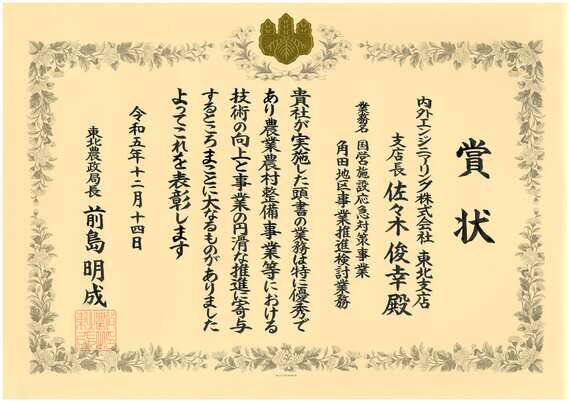 賞状
内外エンジニアリング株式会社 東北支店
支店長 佐々木 俊幸 殿
業務名 国営施設応急対策事業
角田地区事業推進検討業務
貴社が実施した頭書の業務は特に優秀で
あり農業農村整備事業等における
技術の向上と事業の円滑な推進に寄与
するところまことに大なるものがありました
よってこれを表彰します
令和五年十二月十四日
東北農政局長 前島 明成